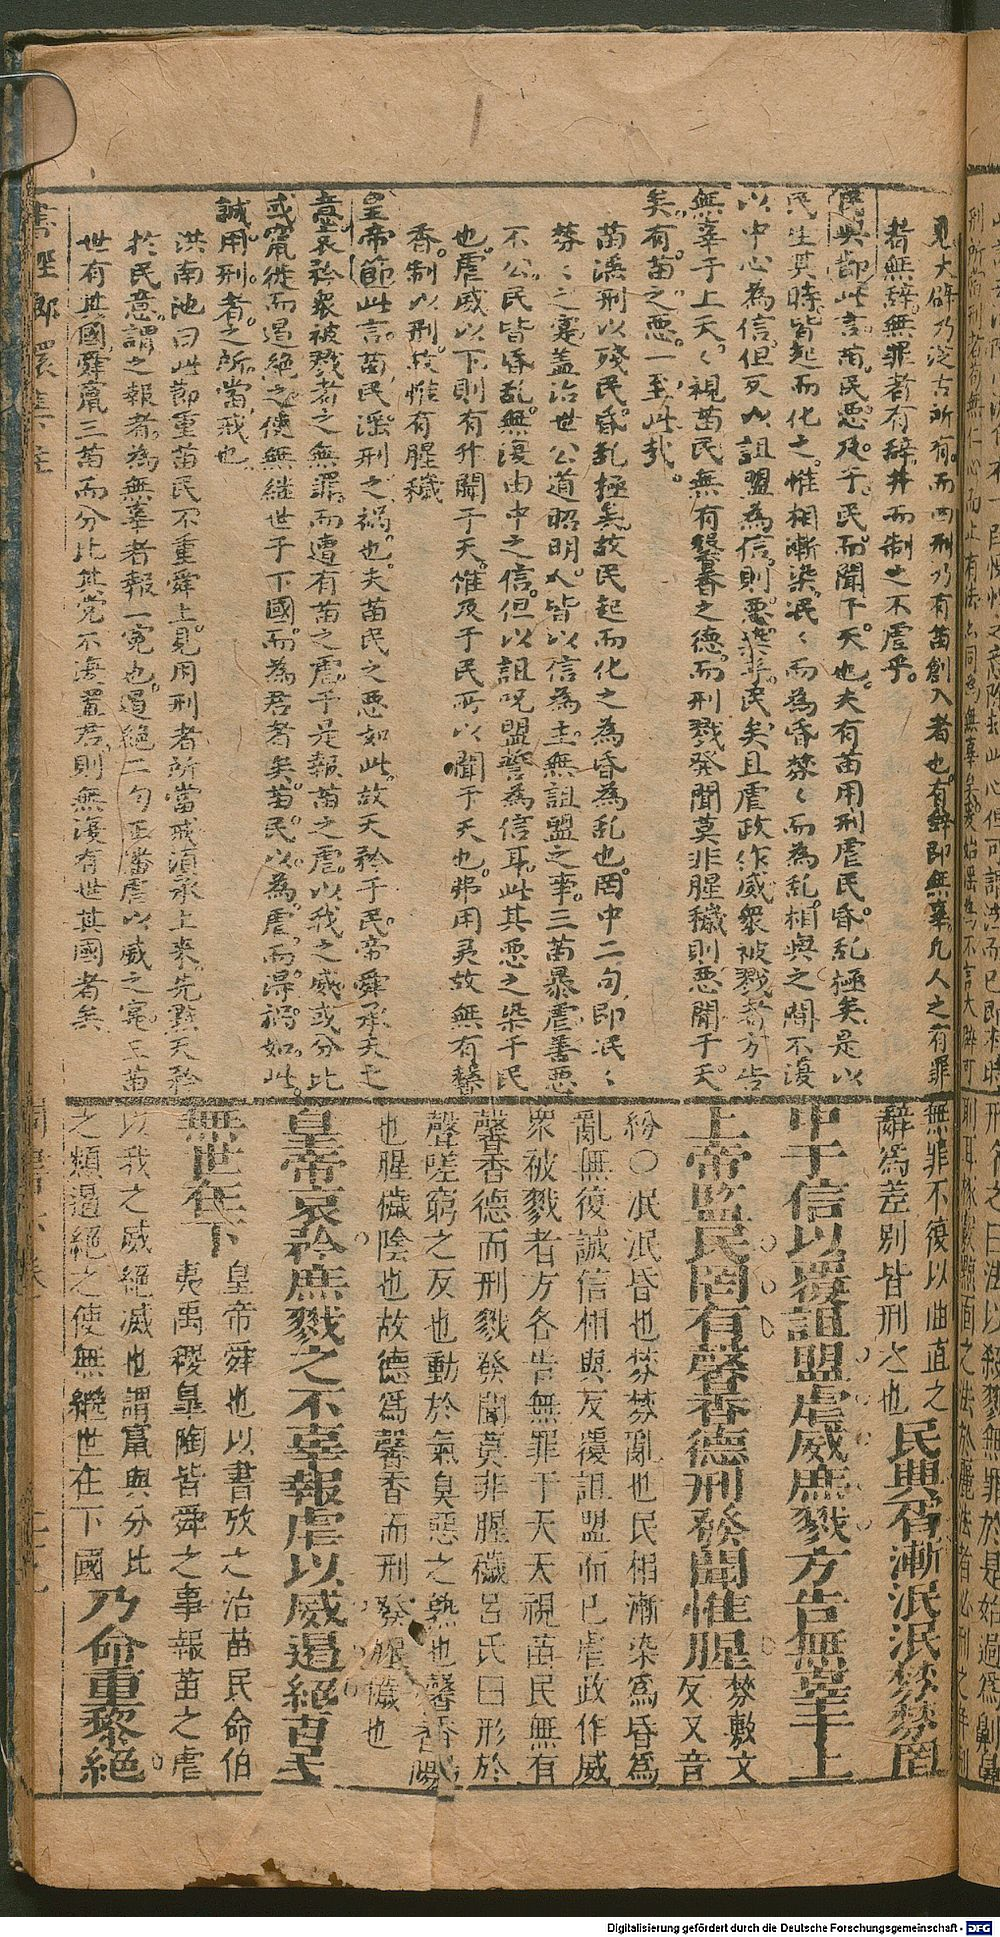 見大辟乃泛古所有而四刑乃有苗創入者也有辭即無辜凡人之有罪
者無辭無罪者有辭并而制之不虐乎
民興節此言苗民惡及于民而聞于天也夫有苗用刑虐民昏乱極矣是以
民生其時皆起而化之惟相漸染泯〻而為昏棼〻而為乱相與之間不復
以中心為信但反以詛盟為信則惡染乎民矣且虐政作威衆被戮者方告
無辜于上天〻視苗民無有馨香之德而刑戮發聞莫非腥穢則惡聞于天
矣有苗之惡一至此哉
苗滛刑以殘民昏乱極矣故民起而化之為昏為乱也罔中二句即泯〻
棼〻之寔盖治世公道昭明人皆以信為主無詛盟之事三苗暴虐善惡
不公民皆昏乱無復由中之信但以詛呪盟誓為信耳此其惡之染于民
也虐威以下則有升聞于天惟及于民所以聞于天也弗用灵故無有馨
香制以刑故惟有腥穢
皇帝節此言苗民滛刑之祸也夫苗民之惡如此故天矜于民帝舜承天之
意哀矜衆被戮者之無罪而遭有苗之虐于是報苗之虐以我之威或分比
或竄徙而遏絕之使無継世于下國而為君者矣苗民以為虐而得祸如此
誠用刑者之所當戒也
洪南池曰此節重苗民不重舜上見用刑者所當戒湏承上来先點天矜
於民意謂之報者為無辜者報一寃也遏絕二句正審虐以威之寔三苗
世有其國舜竄三苗而分比其党不復置君則無復有世其國者矣
無罪不復以曲直之
辭為差別皆刑之也民興胥漸泯泯棼棼罔
中于信以覆詛盟虐威庶戮方告無辜于上
上帝監民罔有馨香德刑發聞惟腥棼敷文反又音
紛○泯泯昏也棼棼亂也民相漸染為昏為
亂無復誠信相與反覆詛盟而已虐政作威
衆被戮者方各告無罪于天天視苗民無有
馨香德而刑戮發聞莫非腥穢呂氏曰形於
聲嗟窮之反也動於氣臭惡之熟也馨香陽
也腥穢陰也故德為馨香而刑發腥穢也
皇帝哀矜庶戮之不辜報虐以威遏絕苗民
無世在下皇帝舜也以書攷之治苗民命伯
夷禹稷皐陶皆舜之事報苗之虐
以我之威絕滅也謂竄與分比
之類遏絕之使無繼世在下國乃命重黎絕
Digitalisierung gefördert durch die Deutsche Forschungsgemeinschaft - DFG